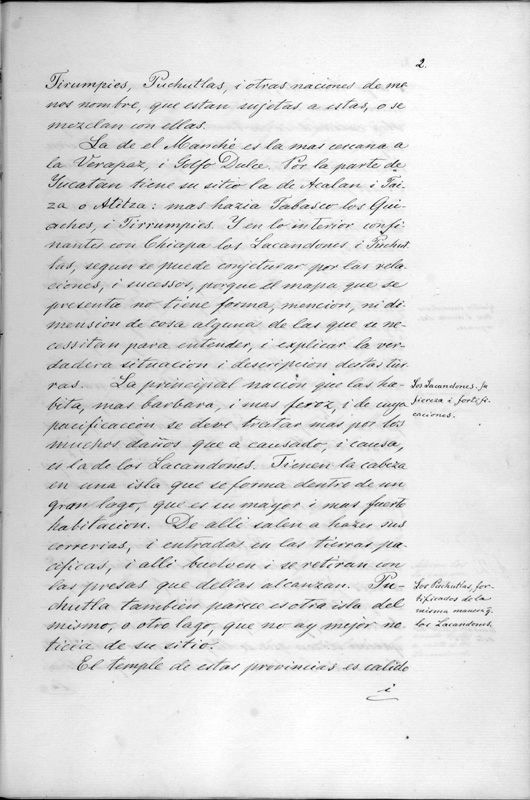 2.
Tirumpies, Puchutlas, i otras naciones de me
nos nombre, que estan sujetas a estas, o se
mezclan con ellas.
La de el Manché es la mas cercana a
la Verapaz, i Golfo Dulce. Por la parte de
Yucatan tiene su sitio la de Acalan i Tai-
za o Atitza: mas hazia Tabasco los Qui-
aches, i Tirrumpies. Y en lo interior confi-
nantes con Chiapa los Lacandones i Puchut-
las, segun se puede conjeturar por las rela-
ciones, i sucessos, porque el mapa que se
presenta no tiene forma, mencion, ni di
mension de cosa alguna de las que se ne-
cessitan para entender, i explicar la ver-
dadera situacion i descripcion destas tier-
ras. La principal nacion que las ha-
bita, mas barbara, i mas feroz, i de cuya
pacificacion se deve tratar mas por los
muchos daños que a causado, i causa,
es la de los Lacandones. Tienen la cabeza
en una isla que se forma dentro de un
gran lago, que es su mayor i mas fuerte
habitacion. De alli salen a hazer sus
correrias, i entradas en las tierras pa-
cificas, i alli buelven i se retiran con
las presas que dellas alcanzan. Pu-
chutla tambien parece es otra isla del
mismo, o otro lago, que no ay mejor no-
ticia de su sitio.
El temple de estas provincias es calido
i
Los Lacandones, su
fiereza i fortifi-
caciones.
Los Puchutlas, for-
tificados de la
misma manera q.
los Lacandones.